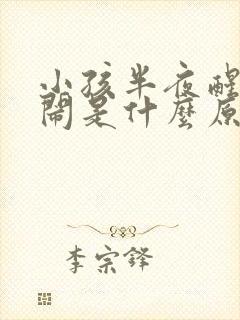 小孩半夜醒
鬧是什麼原
李宗鋒